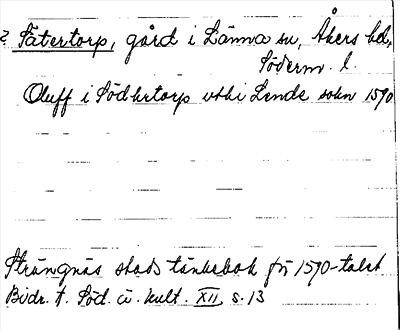 ? Sätertorp, gård i Länna sn, Åkers hd,
Söderm. l.
Oluff i Södhrtorp uthi Lende sokn 1590
Strängnäs stads tänkebok för 1590-talet
Bidr. t. Söd. ä. kult. XII, s. 13